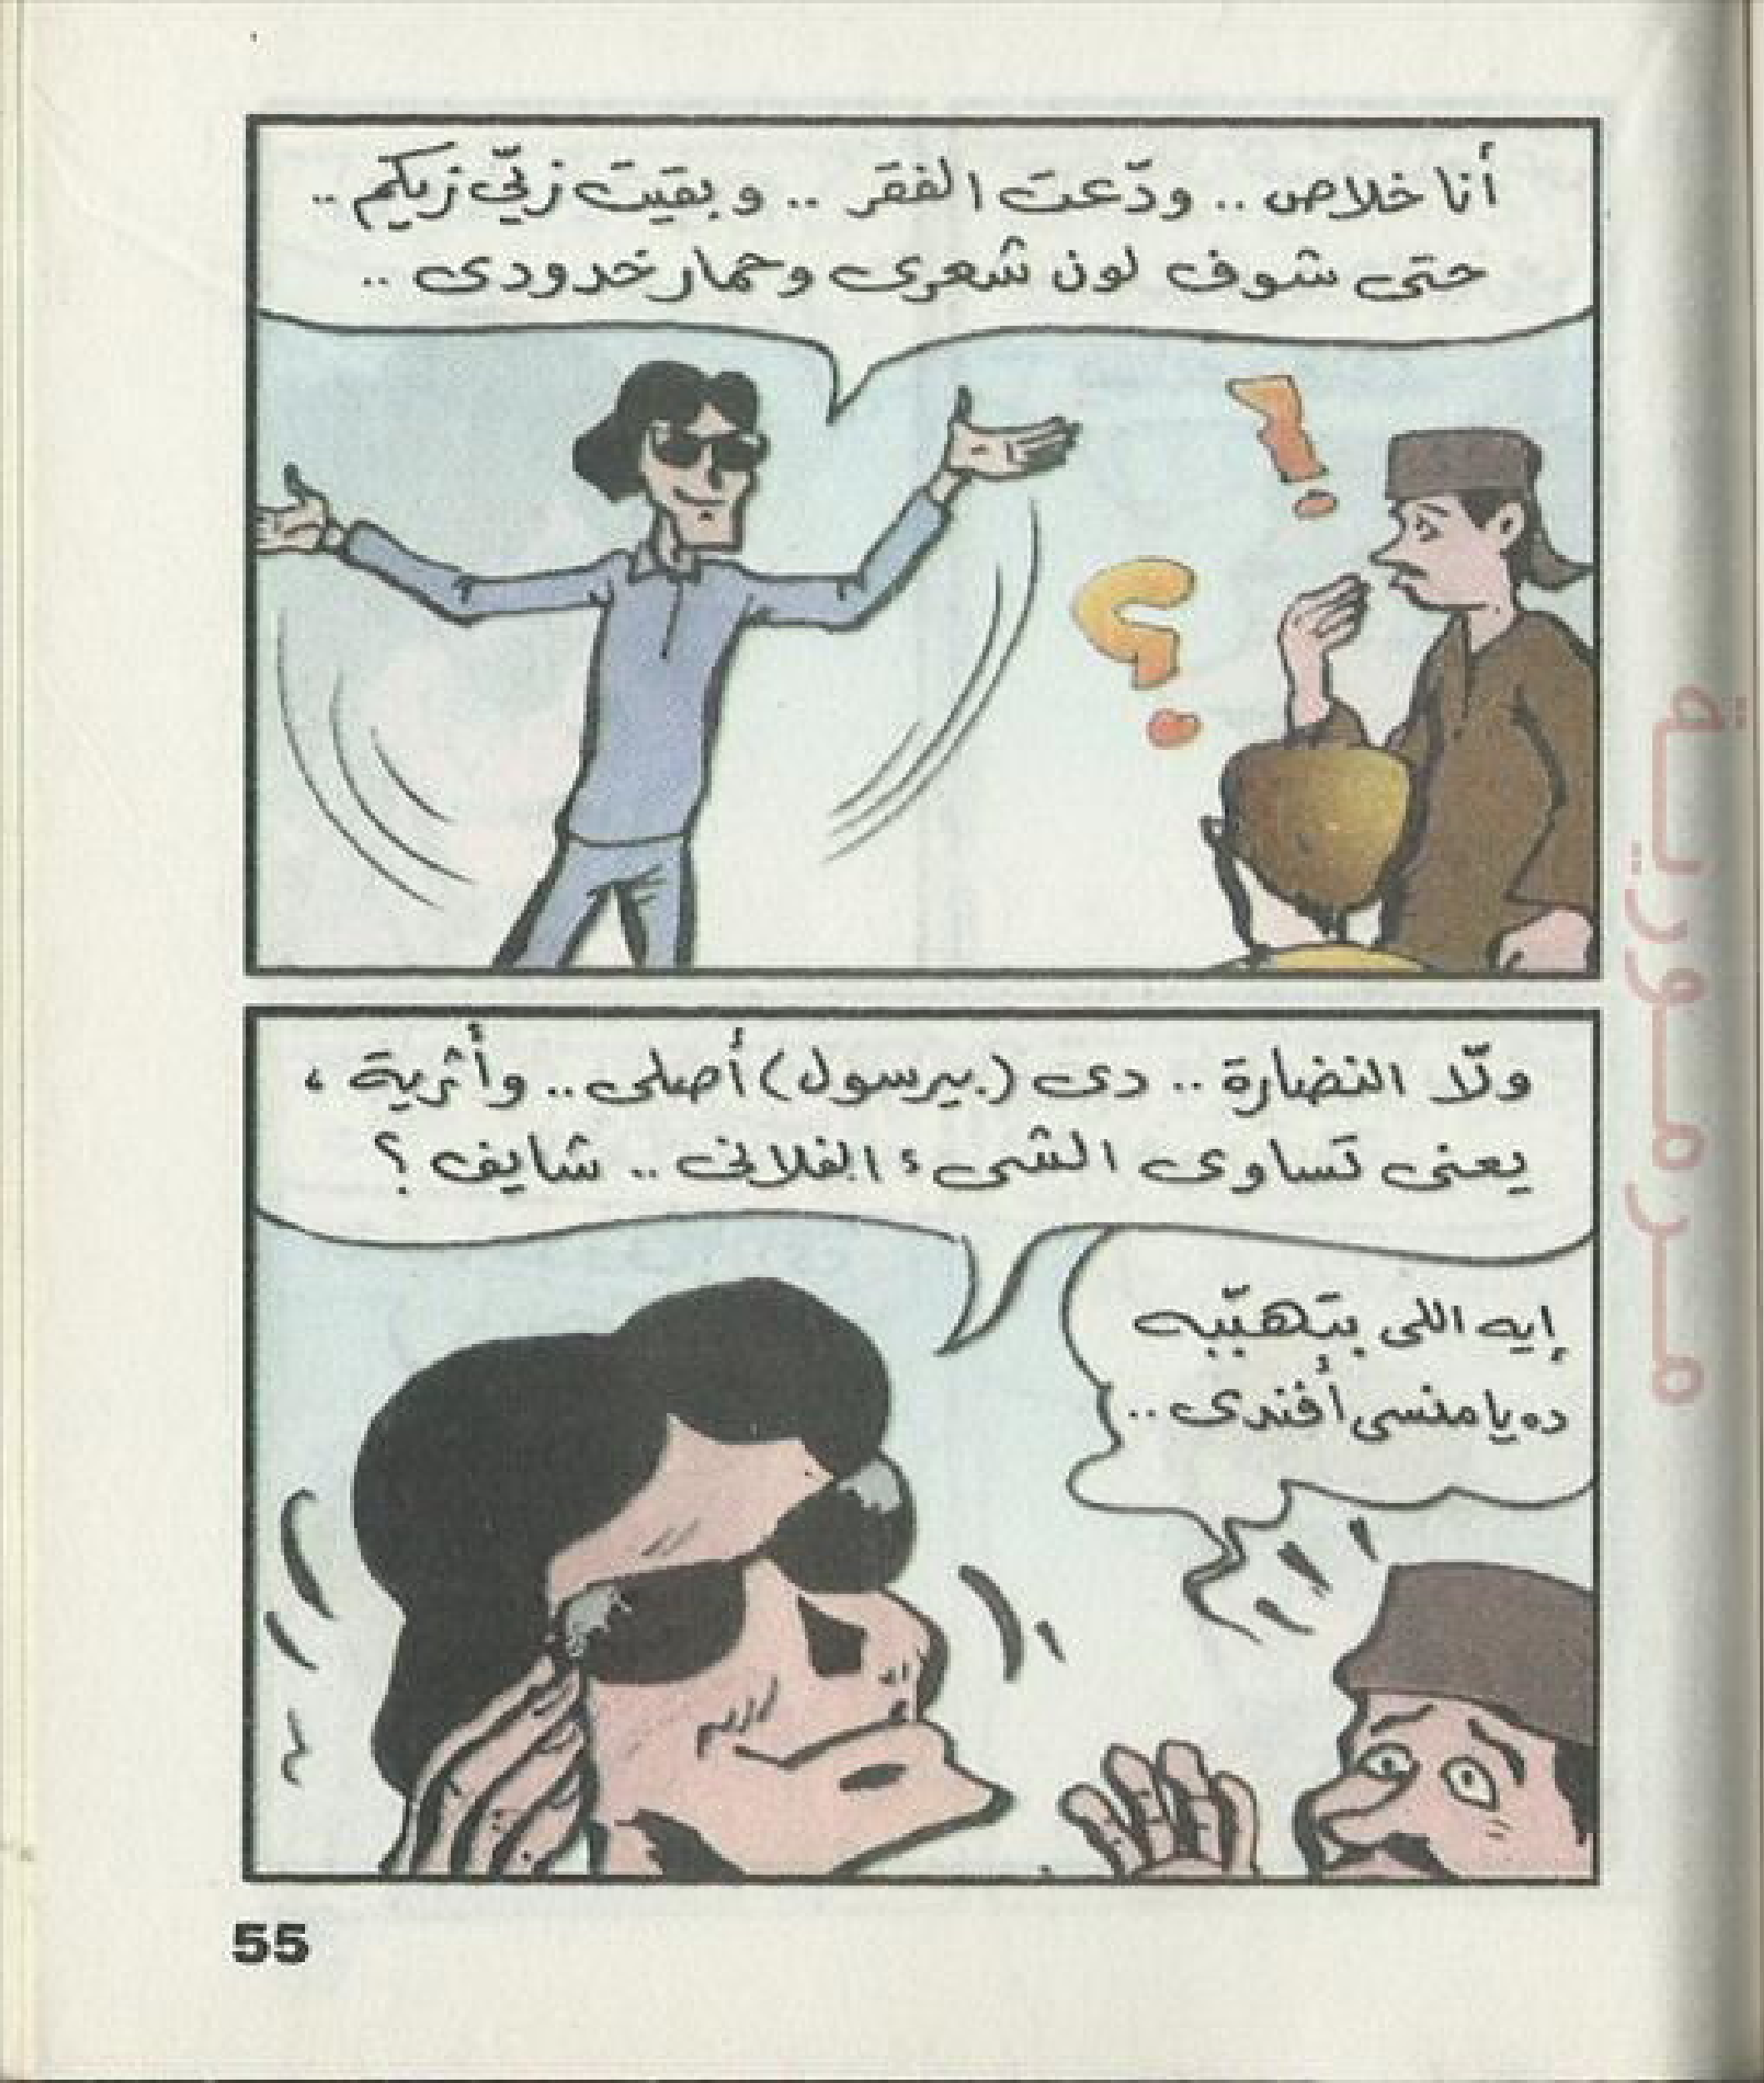 أنا خلاص .. ودّعت الفقر .. وبقيت زيّي زيكم ..
حتى شوف لون شعرى وحمار خدودى ..
ولّا النضارة .. دى (بيرسول) أصلى .. وأثرية ،
يعنى تساوى الشىء الفلانى .. شايف ؟
إيه اللى بتهبّبه
ده يا منسى أفندى ..
55
مرمورية